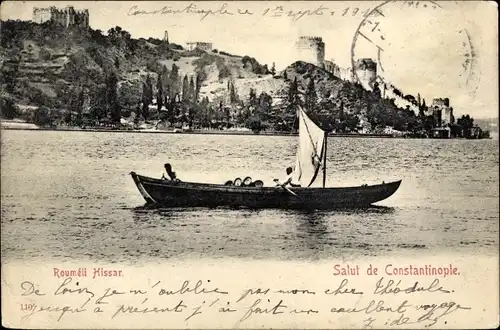 Constantinople ce 1er Sept. 19
Rouméli Hissar.
Salut de Constantinople.
De loin je n'oublie pas mon cher Théodule.
110
Jusqu'à présent j'ai fait un excellent voyage